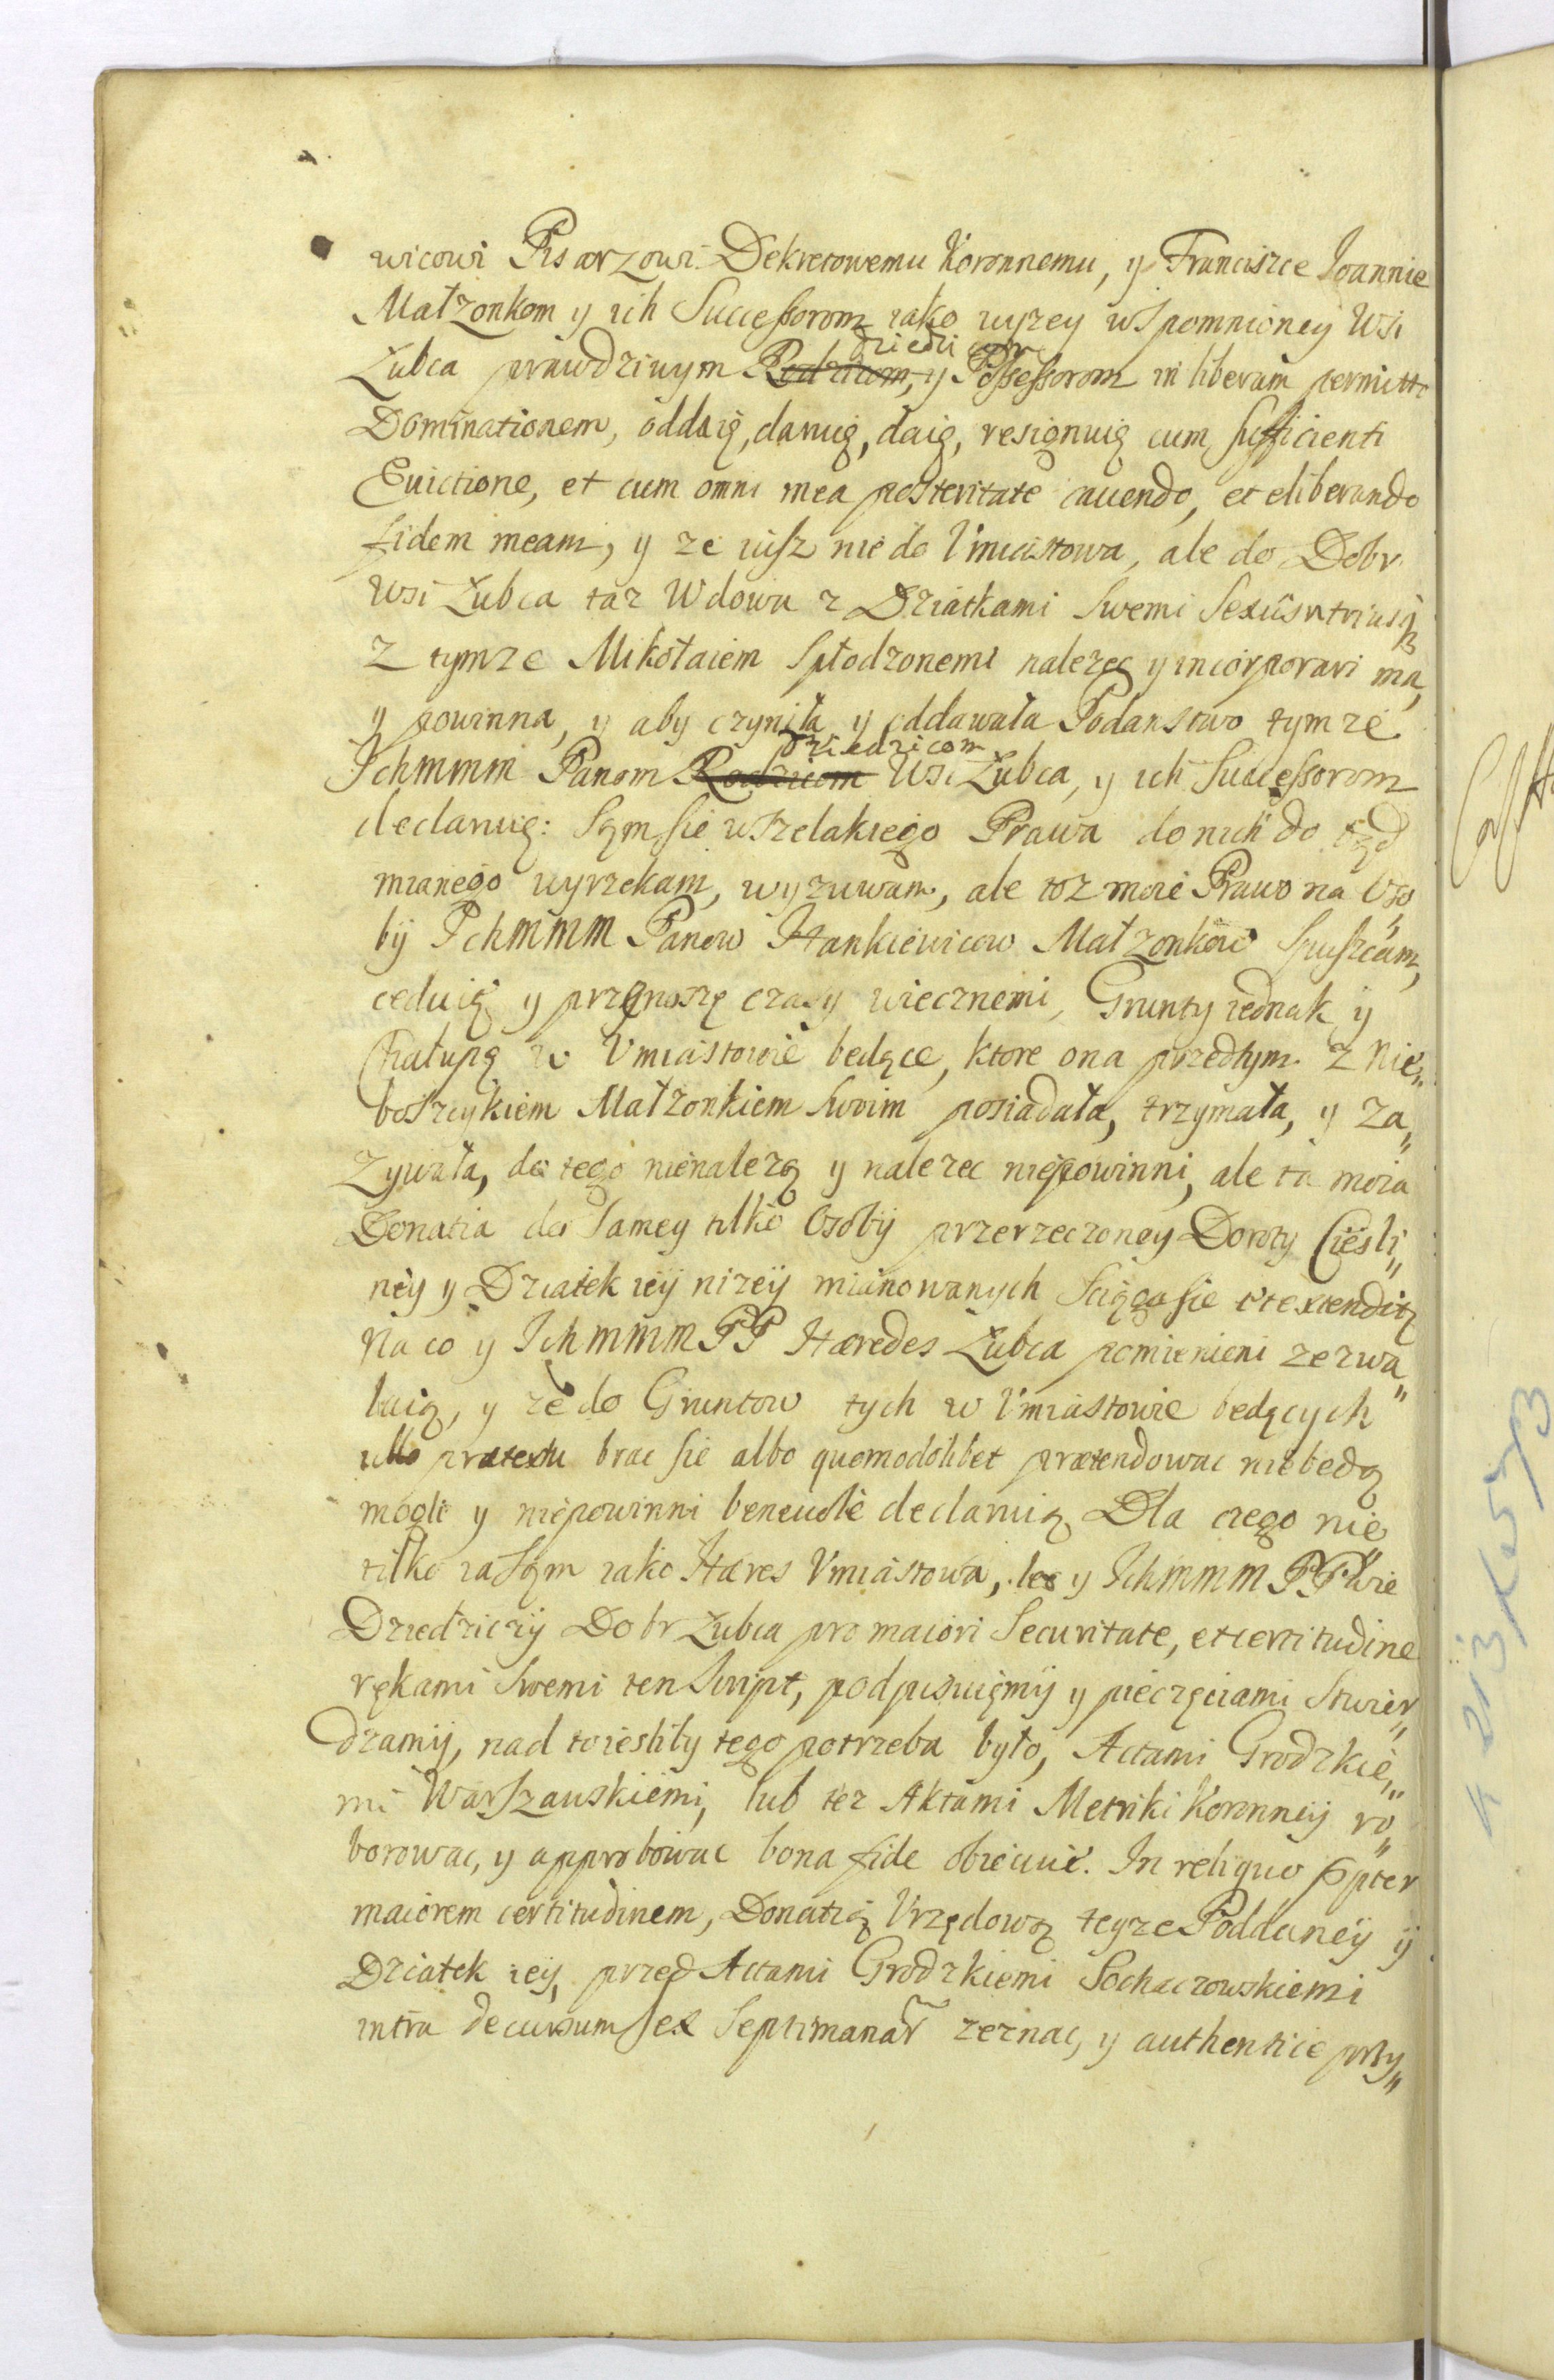 wicowi Pisarzowi Dekretowemu Koronnemu, y Franciszce Ioannie
Małzonkom y ich Successorom iako wyzey wspomnioney Wsi
Zubca prawdziwym dziedzicom y Possessorom in liberam permitto
Dominationem, oddaię, daruię, daię, resignuię cum sufficienti
Euictione, et cum omni mea posteritate cauendo, et eliberando
fidem meam, y ze iusz nie do Vmiastowa, ale do Dobr
wsi Zubca taz Wdowa z Dziatkami swemi sexus utriusq
z tymze Mikołaiem spłodzonemi nalezec y incorporari ma,
y powinna, y aby czyniła y oddawała Podanstwo tymze
Ichmmm Panom dziedzicom Wsi Zubca, y ich Successorom
declaruię: Sąm sie wszelakiego Prawa do nich do tąd
mianego wyrzekam, wyzuwam, ale toz moie Prawo na Oso
bÿ Ichmmm Panow Hankiewicow Małzonkow spuszcam,
ceduię y przenoszę czasy wiecznemi, Grunty iednak y
Chałupę w Vmiastowie będące, ktore ona przedtym z Nie„
boszczykiem Małzonkiem swoim posiadała, trzymała, y za„
zywała, do tego nienalezą y nalezec niepowinni, ale ta moia
Donatia do samey tilko Osobÿ przerzeczoney Doroty Cieśli„
ney y Dziatek ieÿ nizeÿ mianowanych sciąga sie et extenditq
Na co y Ichmmm PP Hæredes Zubca pomienieni zezwa„
laią, y ze do Gruntow tych w Vmiastowie będących
ullo prætextu brac sie albo quomodolibet prætendowac niebedą
mogli y niepowinni beneuole declaruią Dla czego nie
tilko ia sąm iako Hæres Vmiastowa, lec y Ichmmm PP wie
Dziedziczÿ Dobr Zubca pro maiori Securitate, et certitudine
rękami swemi ten Script, podpisuięmÿ y pieczęciami stwier„
dzamÿ, nad to ieśliby tego potrzeba było, Actami Grodzkie„
mi Warszauskiemi, lub tez Aktami Metriki Koronneÿ ro„
borowac, y approbowac bona fide obiecuie. In reliquo ppter
maiorem certitudinem, Donatią Vrzędową teyze Poddaneÿ ÿ
Dziatek ieÿ, przed Actami Grodzkiemi Sochaczowskiemi
intra decursum sex Septimanar zeznac, y authentice przy„